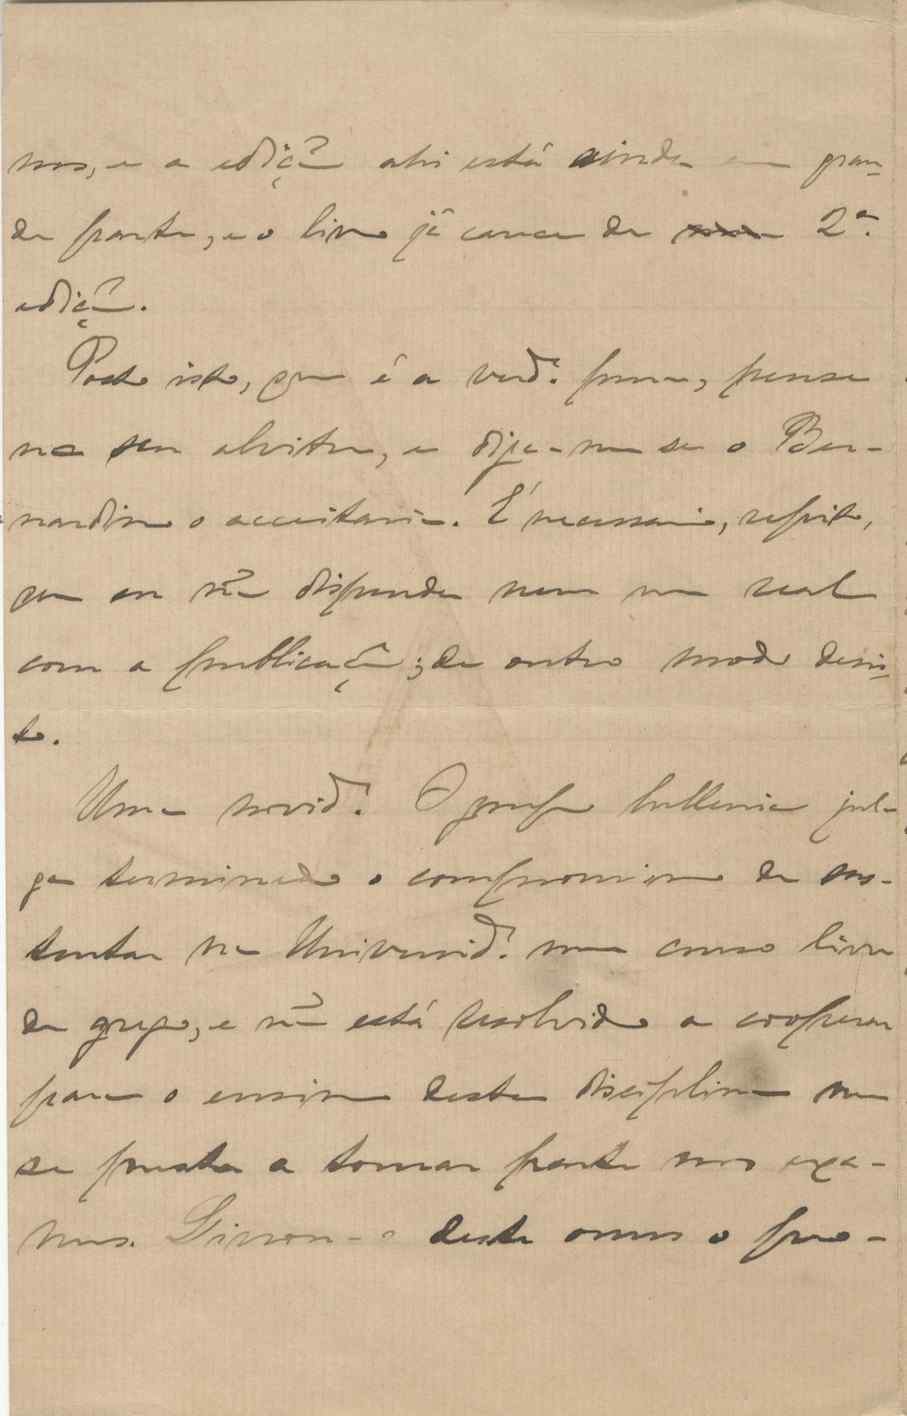 nos, e a edição ahi está ainda em gran-
de parte, e o livro já carece de 2ª.
edição.
Posto isto, que é a verd.e pura, pense
no seu alvitre, e diga-me se o Ber-
nardino o acceitaria. É necessario, repito,
que eu não dispenda nem um real
com a publicação; de outro modo desis-
to.
Uma novid.e! O prof. hellenico jul-
ga terminado o compromisso de sus-
tentar na Universid.e um curso livre
de grego, e não está resolvido a cooperar
para o ensino desta disciplina nem
se presta a tomar parte nos exa-
mes. Livrou-o deste onus o pro-